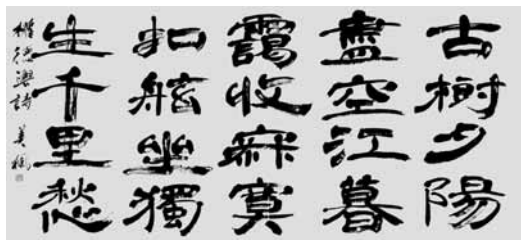 古樹夕陽
盡空江暮
靄收寂寞
扣舷坐獨
生千里愁
權德輿詩 美